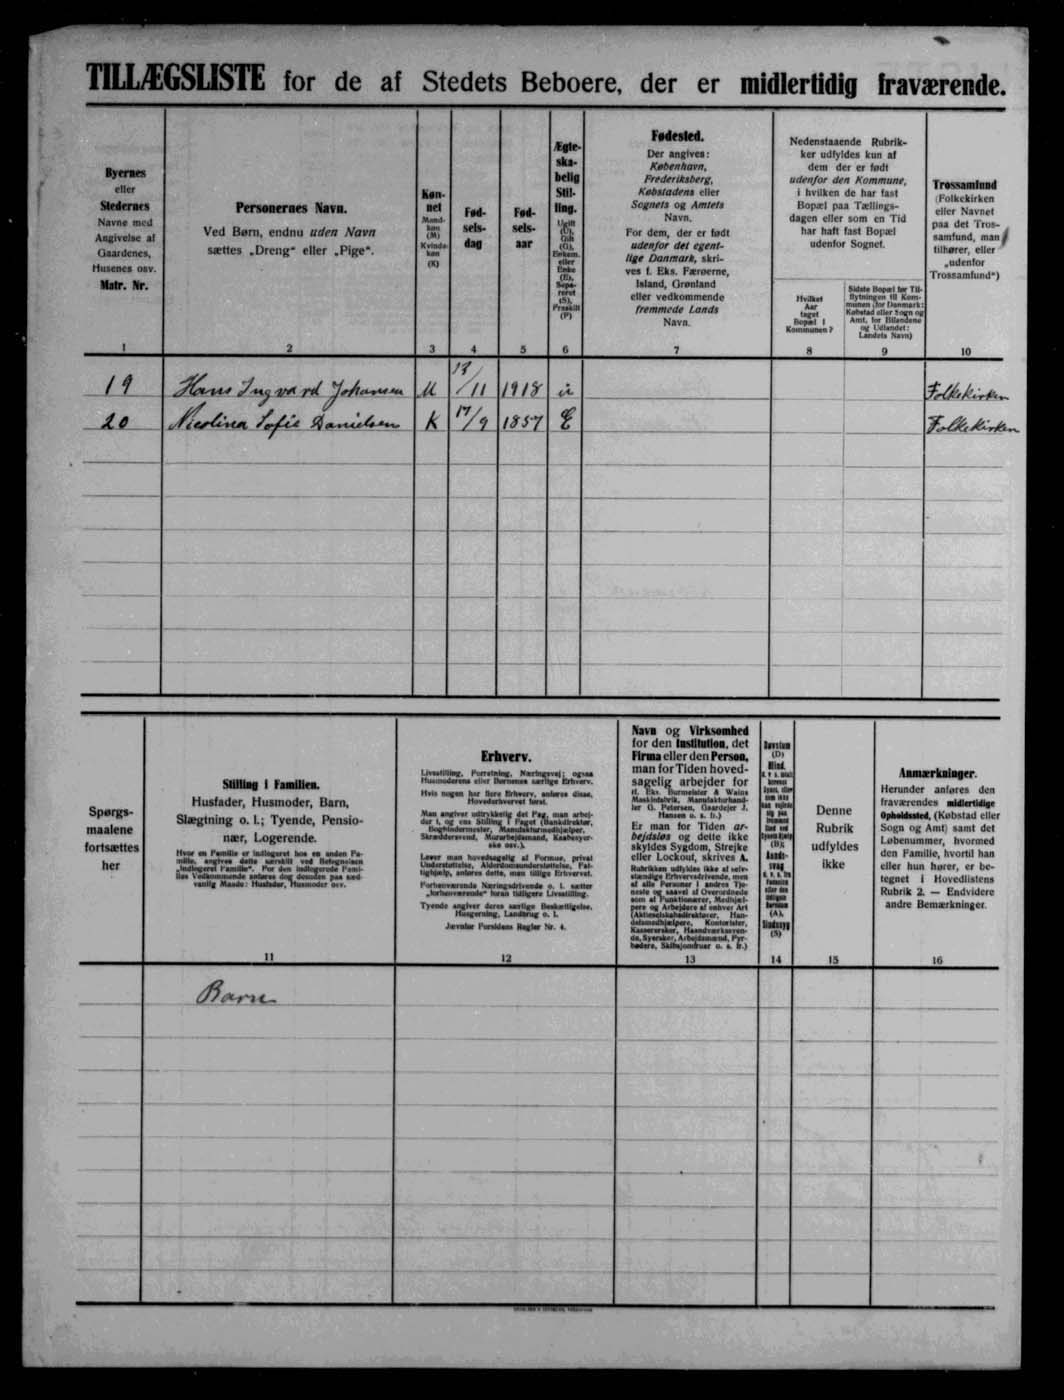 TILLÆGSLISTE for de af Stedets Beboere, der er midlertidig fraværende.
Byernes
eller
Stedernes
Navne med
Angivelse af
Gaardenes,
Husenes osv.
Matr. Nr.
1
Personernes Navn.
Ved Børn, endnu uden Navn
sættes „Dreng“ eller „Pige“.
2
Køn-
net
Mand-
køn
(M)
Kvinde-
køn
(K)
3
Fød-
sels-
dag
4
Fød-
sels-
aar
5
Ægte-
ska-
belig
Stil-
ling.
Ugift
(U),
Gift
(G),
Enkem.
eller
Enke
(E),
Sepa-
reret
(S),
Fraskilt
(F)
6
Fødested.
Der angives:
København,
Frederiksberg,
Købstadens eller
Sognets og Amtets
Navn.
For dem, der er født
udenfor det egent-
lige Danmark, skri-
ves f. Eks. Færøerne,
Island, Grønland
eller vedkommende
fremmede Lands
Navn.
7
Nedenstaaende Rubrik-
ker udfyldes kun af
dem der er født
udenfor den Kommune,
i hvilken de har fast
Bopæl paa Tællings-
dagen eller som en Tid
har haft fast Bopæl
udenfor Sognet.
Hvilket
Aar
taget
Bopæl i
Kommunen?
8
Sidste Bopæl før Til-
flytningen til Kom-
munen (for Danmark:
Købstad eller Sogn og
Amt, for Bilandene
og Udlandet:
Landets Navn)
9
Trossamfund
(Folkekirken
eller Navnet
paa det Tros-
samfund, man
tilhører, eller
„udenfor
Trossamfund“)
10
19 Hans Ingvard Johansen M 13/11 1918 u Folkekirken
20 Nicolina Sofie Danielsen K 17/9 1857 E Folkekirken
Spørgs-
maalene
fortsættes
her
Stilling i Familien.
Husfader, Husmoder, Barn,
Slægtning o. l.; Tyende, Pensio-
nær, Logerende.
Hvor en Familie er indlogeret hos en anden Fa-
milie, angives dette særskilt ved Betegnelsen
„Indlogeret Familie“. For den indlogerede Fami-
lies Vedkommende anføres dog desuden paa sæd-
vanlig Maade: Husfader, Husmoder osv.
11
Erhverv.
Livsstilling, Forretning, Næringsvej; ogsaa
Husmoderens eller Børnenes særlige Erhverv.
Hvis nogen har flere Erhverv, anføres disse,
Hovederhvervet først.
Man angiver udtrykkelig det Fag, man arbej-
der i, og ens Stilling i Faget (Bankdirektør,
Bogbindermester, Manufakturmedhjælper,
Skræddersvend, Murarbejdsmand, Kusbesyer-
ske osv.).
Lever man hovedsagelig af Formue, privat
Understøttelse, Alderdomsunderstøttelse, Fat-
tighjælp, anføres dette, man tillige Erhvervet.
Forhenværende Næringsdrivende o. l. sætter
„forhenværende“ foran tidligere Livsstilling.
Tyende angiver deres særlige Beskæftigelse,
Husgerning, Landbrug o. l.
Jævnfør Forsidens Regler Nr. 4.
12
Navn og Virksomhed
for den Institution, det
Firma eller den Person,
man for Tiden hoved-
sagelig arbejder for
(f. Eks. Burmeister & Wains
Maskinfabrik, Manufakturhand-
ler G. Petersen, Gaardejer J.
Hansen o. s. fr.)
Er man for Tiden ar-
bejdsløs og dette ikke
skyldes Sygdom, Strejke
eller Lockout, skrives A.
Rubrikken udfyldes ikke af selv-
stændige Erhvervsdrivende, men
af alle Personer i andres Tje-
neste og saavel af Overordnede
som af Funktionærer, Medhjæl-
pere og Arbejdere af enhver Art
(Aktieselskabsdirektører, Han-
delsmedhjælpere, Kontorister,
Kassererske, Haandværkssven-
de, Syersker, Arbejdsmænd, Fyr-
bødere, Skibsjomfruer o. s. fr.)
13
Døvstum
(D)
Blind,
(B);
Aands-
svag
(A),
Sindssyg
(S)
14
Denne
Rubrik
udfyldes
ikke
15
Anmærkninger.
Herunder anføres den
fraværendes midlertidige
Opholdssted, (Købstad eller
Sogn og Amt) samt det
Løbenummer, hvormed
den Familie, hvortil han
eller hun hører, er be-
tegnet i Hovedlistens
Rubrik 2. — Endvidere
andre Bemærkninger.
16
Barn